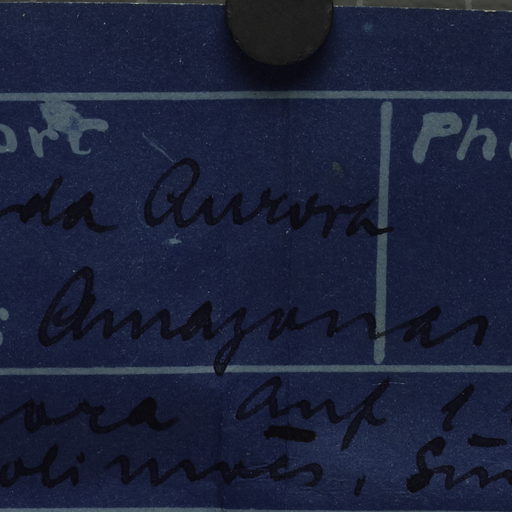 ort Pho
da Aurora
s Amazonas
ora Auf 1
olimoes, Sün